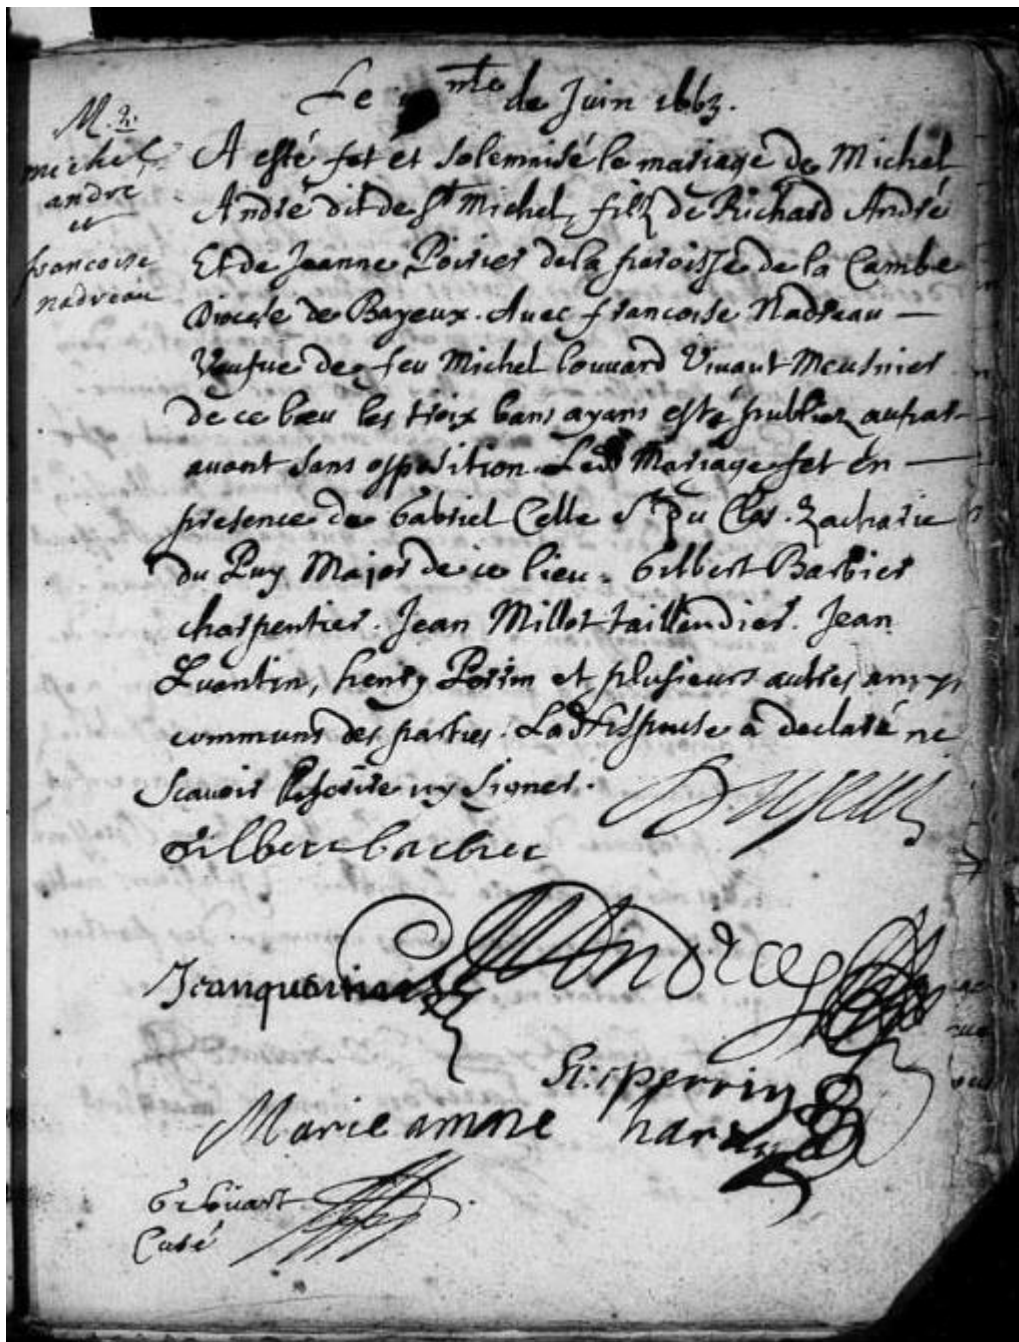 Le nte de Juin 1663.
M. 2.
michel
andre
et
francoise
nadreau
A esté fet et solemnisé le mariage de Michel
André dit de St Michel, filz de Richard André
Et de Jeanne Poirier de la paroisse de la Cambe
Diocese de Bayeux. Avec francoise Nadreau —
Veufue de feu Michel Louuard Viuant Meusnier
de ce lieu les troix bans ayans esté publiez aupar-
auant sans opposition. Led Mariage fet en —
presence de Gabriel Celle Sr Du Clos. Zacharie
du Puy Major de ce lieu. Gilbert Barbier
charpentier. Jean Millot taillendier. Jean
Quentin, henry Perrin et plusieurs autres amys
communs des parties. Lad Espouse a declaré ne
Scauoir Escrire ny Signer.
Dupuis
Gilbere barbier
Andre
Jean quantin
perrin
Marie amone hardy
G. Souart
Curé